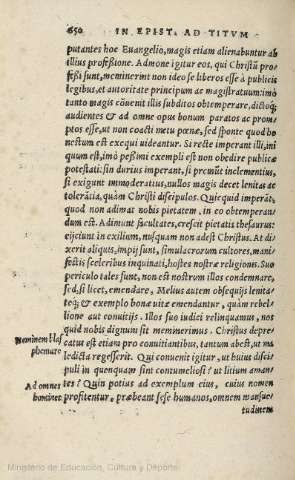 650 IN EPIST. AD TITVM
putantes hoc Euangelio, magis etiam alienabuntur ab
illius professione. Admone igitur eos, qui Christũ pro-
fessi sunt, meminerint non ideo se liberos esse à publicis
legibus, et autoritate principum ac magistratuum: imò
tanto magis cõuenit illis subditos obtemperare, dictoq́;
audientes & ad omne opus bonum paratos ac prom-
ptos esse, ut non coacti metu pœnæ, sed sponte quod ho
nestum est exequi uideantur. Si recte imperant illi, ini
quum est, imò pessimi exempli est non obedire publicæ
potestati: sin durius imperant, si premũt inclementius,
si exigunt immoderatius, nullos magis decet lenitas ac
tolerãtia, quàm Christi discipulos. Quicquid imperãt,
quod non adimat nobis pietatem, in eo obtemperan/
dum est. Adimunt facultates, crescit pietatis thesaurus:
eijciunt in exilium, nusquam non adest Christus. At di-
xerit aliquis, impij sunt, simulacrorum cultores, mani/
festis sceleribus inquinati, hostes nostræ religionis. Suo
periculo tales sunt, non est nostrum illos condemnare,
sed, si licet, emendare. Melius autem obsequijs lenita-
teq́; & exemplo bonæ uitæ emendantur, quàm rebel-
lione aut conuitijs. Illos suo iudici relinquamus, nos
quid nobis dignum sit meminerimus. Christus depre/
Neminem blas catus est etiam pro conuitiantibus, tantum abest, ut ma
phemare ledicta regesserit. Qui conuenit igitur, ut huius disci-
puli in quenquam sint contumeliosi? ut litium aman/
Ad omnes tes? Quin potius ad exemplum eius, cuius nomen
homines profitentur, præbeant sese humanos, omnem mansue/
tudinem
Ministerio de Educación, Cultura y Deporte